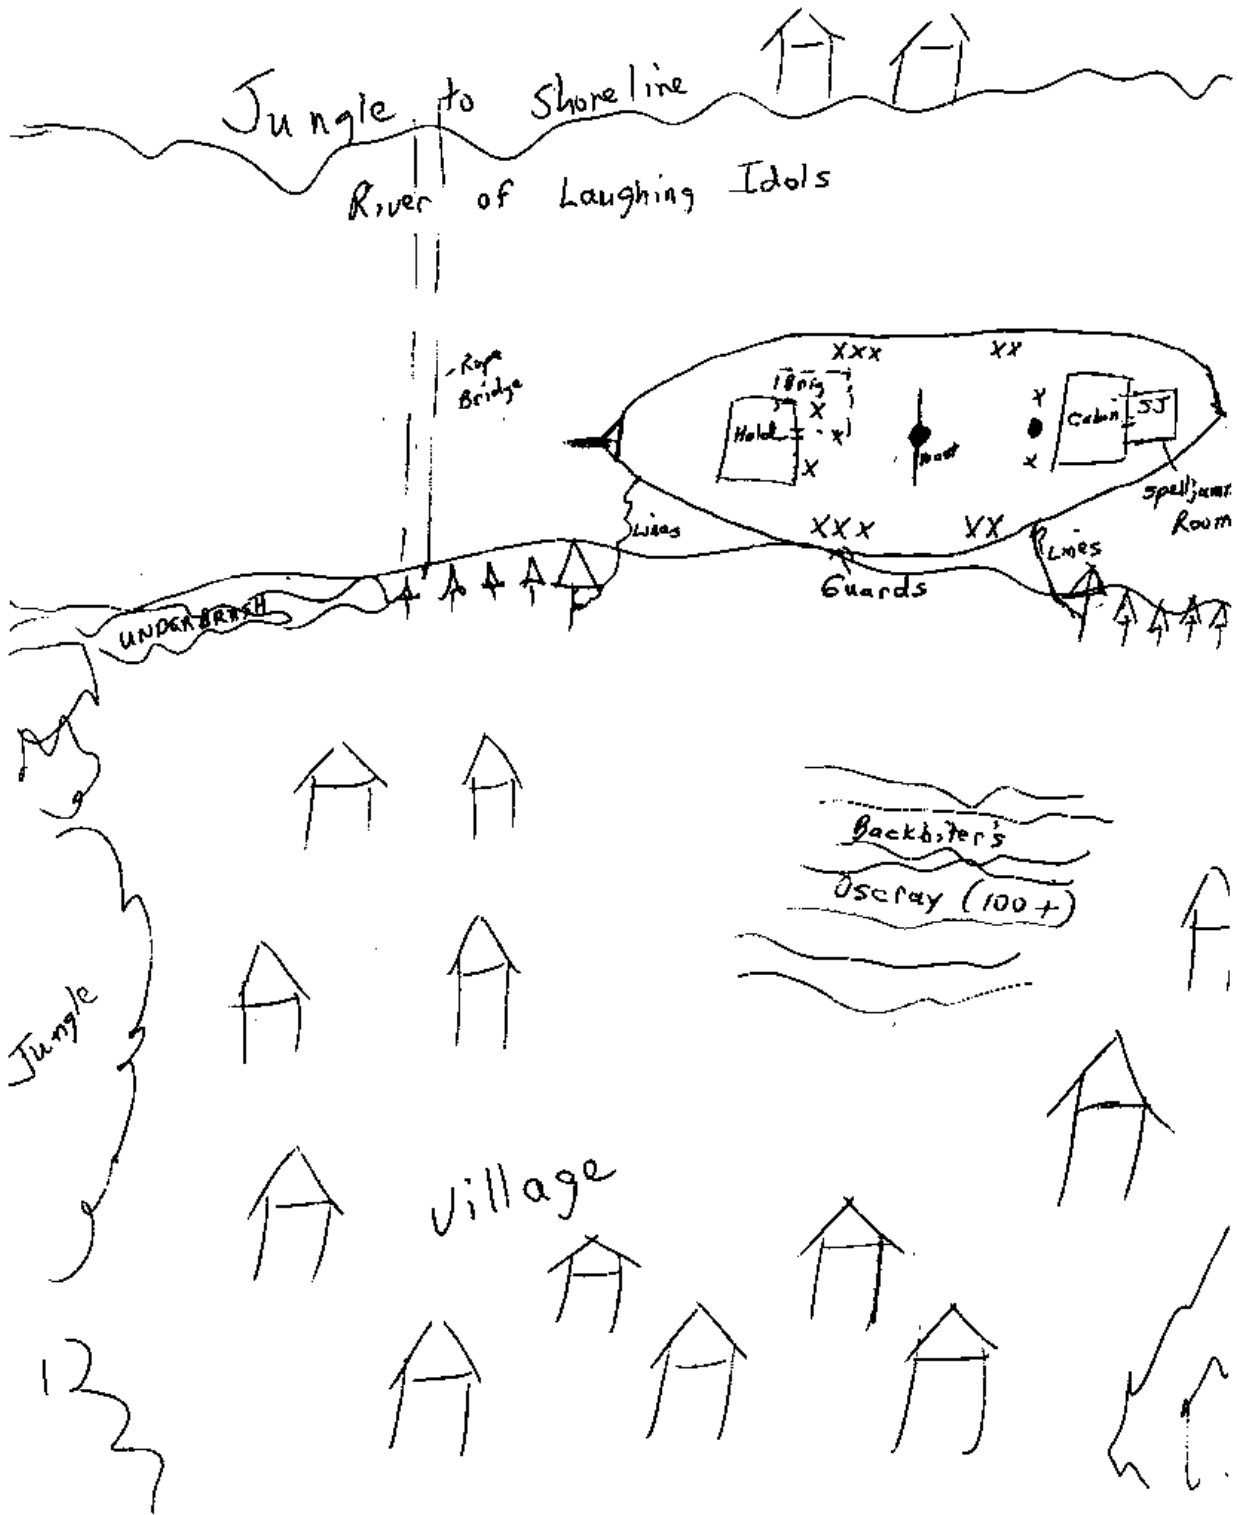 Jungle to Shoreline
River of Laughing Idols
Rope
Bridge
XXX
XX
Brig
X
Hold
X
X
mast
X
X
Cabin
SJ
Room
XXX
XX
Lines
Lines
Guards
UNDERBRUSH
Backbiter's
(100+)
Jungle
Village